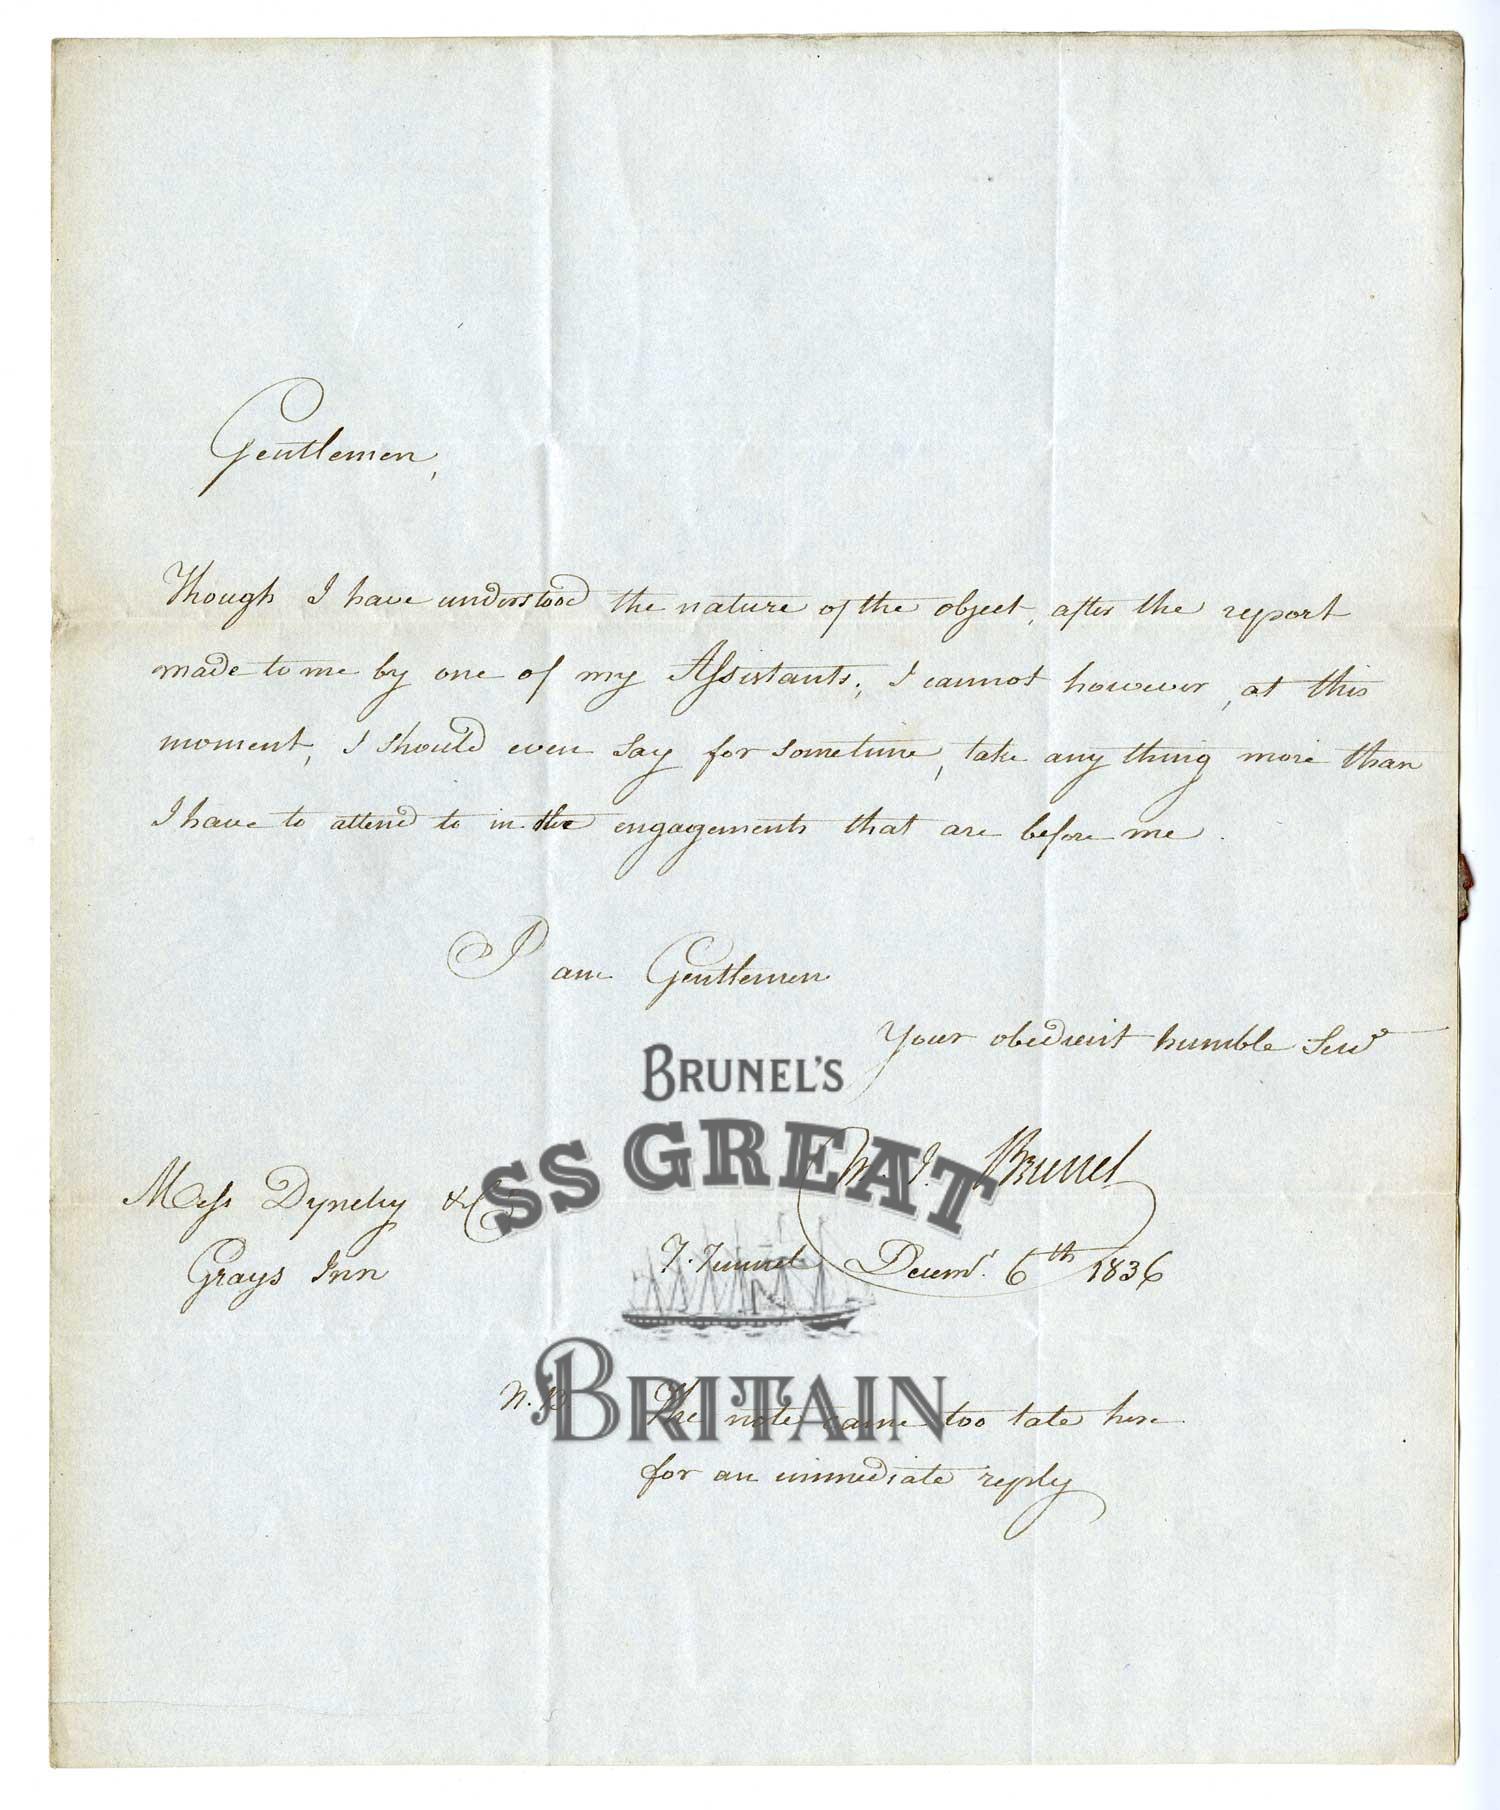 Gentlemen,
Though I have understood the nature of the object, after the report
made to me by one of my Assistants; I cannot however, at this
moment, I should even say for sometime, take any thing more than
I have to attend to in the engagements that are before me.
I am Gentlemen
Your obedient humble Servt
BRUNEL'S
SS GREAT
BRITAIN
M. I. Brunel
Mess Dyneley & Co
Grays Inn
T. Tunnel Decemr. 6th 1836
N.B. The note came too late here
for an immediate reply